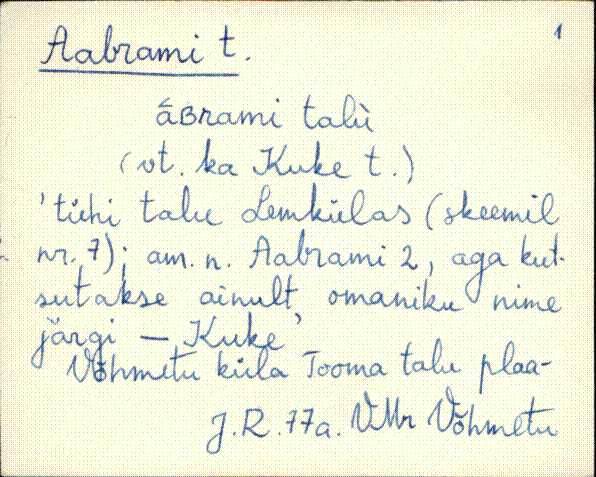 1
Aabrami t.
āʙrami talù
(vt. ka Kuke t.)
'tühi talu Lemkülas (skeemil
nr. 7); am. n. Aabrami 2, aga kut-
sutakse ainult omaniku nime
järgi — Kuke'
Võhmetu küla Tooma talu plaa-
J.R. 77a. VMr Võhmetu